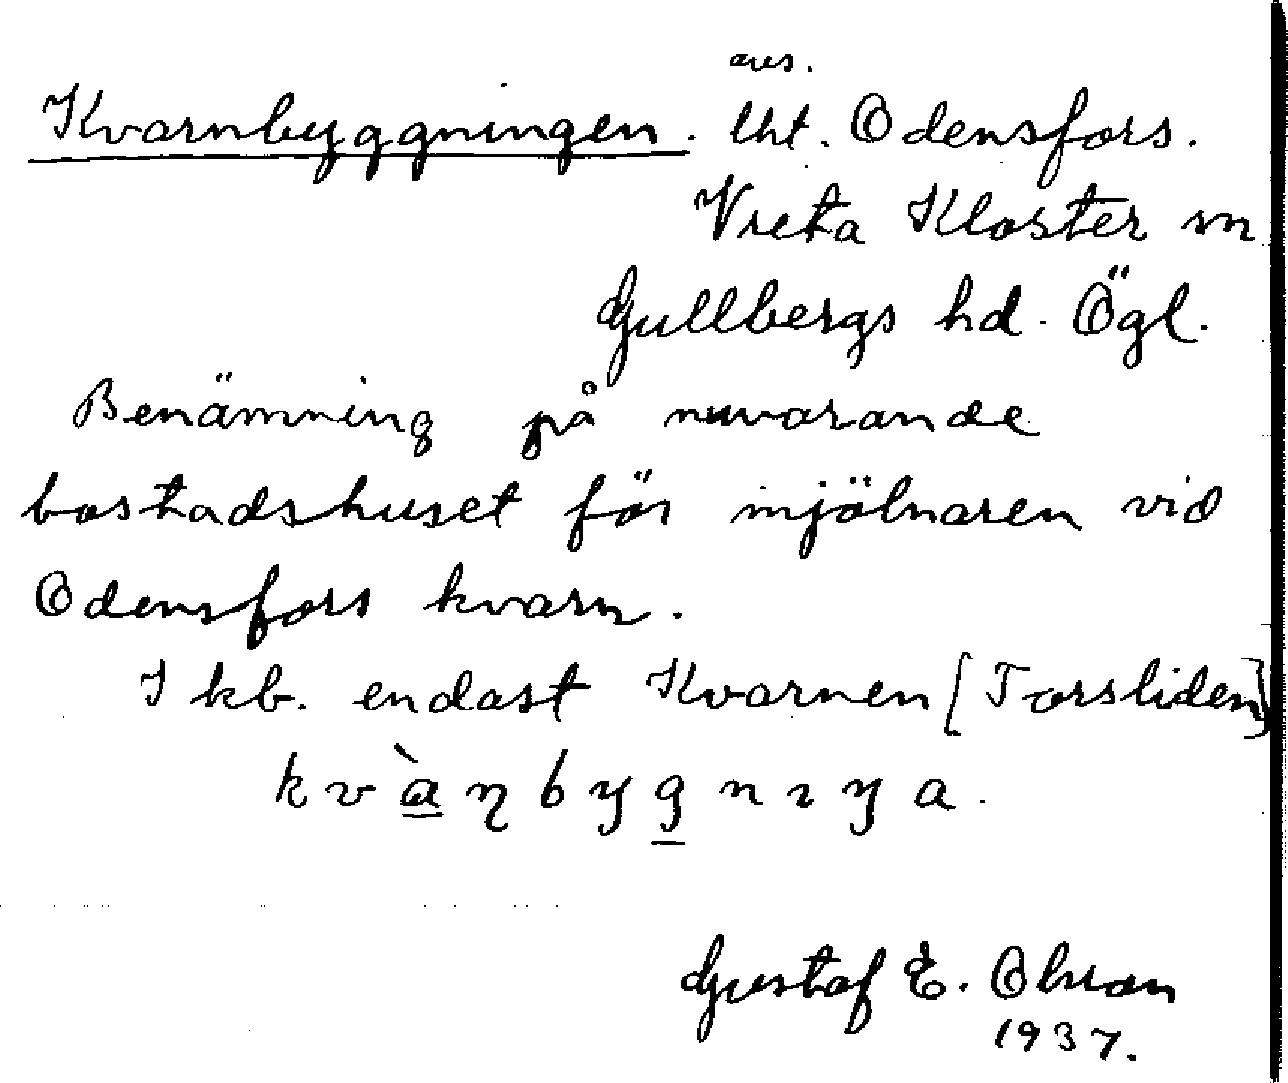 avs.
Kvarnbyggningen. lht. Odensfors.
Vreta Kloster sn
Gullbergs hd. Ögl.
Benämning på nuvarande
bostadshuset för mjölnaren vid
Odensfors kvarn.
I kb. endast Kvarnen [Torsliden]
kvàŋbygnıŋa.
Gustaf E. Olsson
1937.